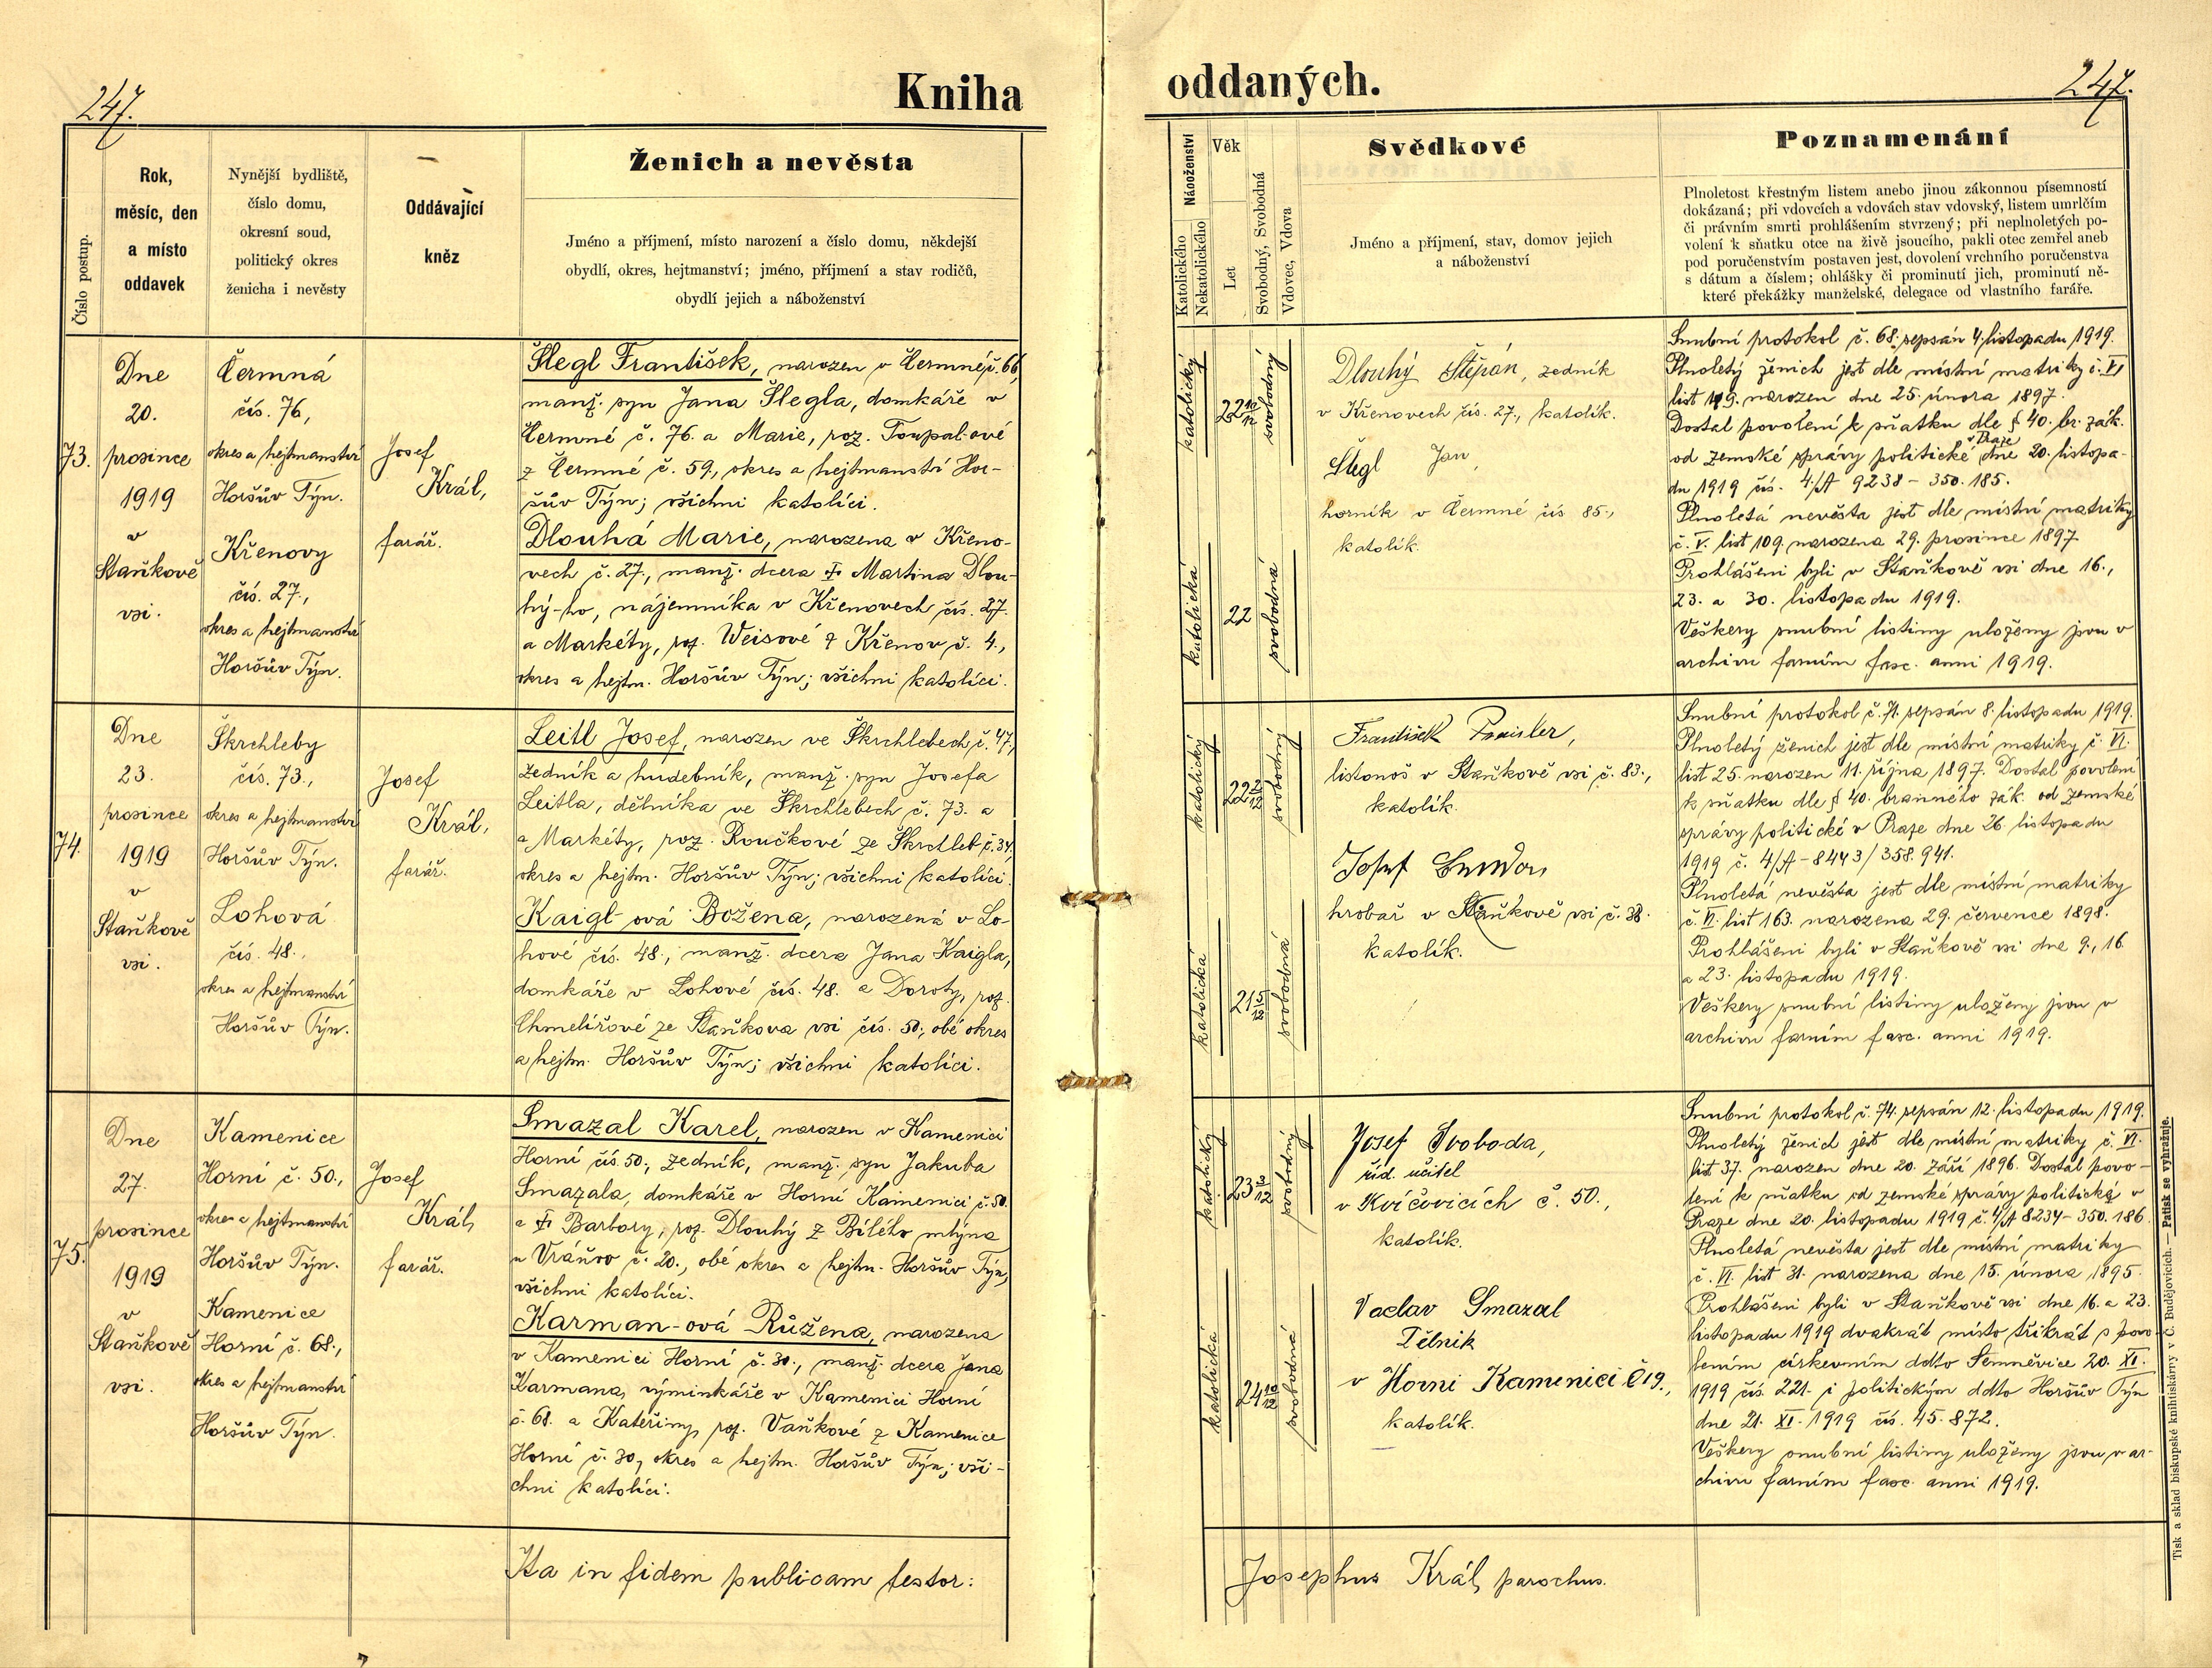 247.
Kniha
oddaných.
247.
Číslo postup.
Rok,
měsíc, den
a místo
oddavek
Nynější bydliště,
číslo domu,
okresní soud,
politický okres
ženicha i nevěsty
Oddávající
kněz
Ženich a nevěsta
Jméno a příjmení, místo narození a číslo domu, někdejší
obydlí, okres, hejtmanství; jméno, příjmení a stav rodičů,
obydlí jejich a náboženství
Náboženství
Katolického
Nekatolického
Věk
Let
Svobodný, Svobodná
Vdovec, Vdova
Svědkové
Jméno a příjmení, stav, domov jejich
a náboženství
Poznamenání
Plnoletost křestným listem anebo jinou zákonnou písemností
dokázaná; při vdovcích a vdovách stav vdovský, listem umrlčím
či právním smrti prohlášením stvrzený; při neplnoletých po-
volení k sňatku otce na živě jsoucího, pakli otec zemřel aneb
pod poručenstvím postaven jest, dovolení vrchního poručenstva
s dátum a číslem; ohlášky či prominutí jich, prominutí ně-
které překážky manželské, delegace od vlastního faráře.
73.
Dne
20.
prosince
1919
v
Staňkově
vsi.
Čermná
čís. 76,
okres a hejtmanství
Horšův Týn.
Křenovy
čís. 27.,
okres a hejtmanství
Horšův Týn.
Josef
Král,
farář.
Šlegl František, narozen v Čermné č. 66,
manž. syn Jana Šlegla, domkáře v
Čermné č. 76. a Marie, roz. Toupal-ové
z Čermné č. 59., okres a hejtmanství Hor-
šův Týn; všichni katolíci.
Dlouhá Marie, narozena v Křeno-
vech č. 27., manž. dcera † Martina Dlou-
hý-ho, nájemníka v Křenovech čís. 27.
a Markéty, roz. Weisové z Křenov č. 4.,
okres a hejtm. Horšův Týn; všichni katolíci.
katolický
22 10/12
svobodný
katolická
22
svobodná
Dlouhý Štěpán, zedník
v Křenovech čís. 27., katolík.
Šlegl Jan,
horník v Čermné čís 85.,
katolík.
Snubní protokol č. 68. sepsán 4. listopadu 1919.
Plnoletý ženich jest dle místní matriky č. VI
list 19. narozen dne 25. února 1897.
Dostal povolení k sňatku dle § 40. br. zák.
od zemské správy politické v Praze dne 20. listopa-
du 1919 čís. 4/A 9238 - 350.185.
Plnoletá nevěsta jest dle místní matriky
č. V. list 109. narozena 29. prosince 1897.
Prohlášeni byli v Staňkově vsi dne 16.,
23. a 30. listopadu 1919.
Veškery snubní listiny uloženy jsou v
archivu farním fasc. anni 1919.
74.
Dne
23.
prosince
1919
v
Staňkově
vsi.
Škrchleby
čís. 73.,
okres a hejtmanství
Horšův Týn.
Lohová
čís. 48.,
okres a hejtmanství
Horšův Týn.
Josef
Král,
farář.
Leitl Josef, narozen ve Škrchlebech č. 47,
zedník a hudebník, manž. syn Josefa
Leitla, dělníka ve Škrchlebech č. 73. a
a Markéty, roz. Roučkové ze Škrchleb č. 34,
okres a hejtm. Horšův Týn; všichni katolíci.
Kaigl-ová Božena, narozená v Lo-
hové čís. 48., manž. dcera Jana Kaigla,
domkáře v Lohové čís. 48. a Doroty, roz.
Chmelířové ze Staňkova vsi čís. 50., obé okres
a hejtm. Horšův Týn; všichni katolíci.
katolický
22 2/12
svobodný
katolická
21 5/12
svobodná
František
listonoš v Staňkově vsi č. 83.,
katolík.
Josef
hrobař v Staňkově vsi č. 38.
katolík.
Snubní protokol č. 71. sepsán 8. listopadu 1919.
Plnoletý ženich jest dle místní matriky č. VI.
list 25. narozen 11. října 1897. Dostal povolení
k sňatku dle § 40. branného zák. od zemské
správy politické v Praze dne 26. listopadu
1919 č. 4/A - 8443/358.941.
Plnoletá nevěsta jest dle místní matriky
č. VI. list 163. narozena 29. července 1898.
Prohlášeni byli v Staňkově vsi dne 9., 16.
a 23. listopadu 1919.
Veškery snubní listiny uloženy jsou v
archivu farním fasc. anni 1919.
75.
Dne
27.
prosince
1919
v
Staňkově
vsi.
Kamenice
Horní č. 50.,
okres a hejtmanství
Horšův Týn.
Kamenice
Horní č. 68.,
okres a hejtmanství
Horšův Týn.
Josef
Král,
farář.
Smazal Karel, narozen v Kamenici
Horní čís. 50., zedník, manž. syn Jakuba
Smazala, domkáře v Horní Kamenici č. 50.
a † Barbory, roz. Dlouhý z Bílého mlýna
u Vráňov č. 20., obé okres a hejtm. Horšův Týn,
všichni katolíci.
Karman-ová Růžena, narozena
v Kamenici Horní č. 30., manž. dcera Jana
Karmana, výminkáře v Kamenici Horní
č. 68. a Kateřiny, roz. Vaňkové z Kamenice
Horní č. 30, okres a hejtm. Horšův Týn; vši-
chni katolíci.
katolický
23 3/12
svobodný
katolická
24 10/12
svobodná
Josef Svoboda,
říd. učitel
v Kvíčovicích č. 50.,
katolík.
Vaclav Smazal
Dělnik
v Horni Kamenici č 19.,
katolík.
Snubní protokol č. 74. sepsán 12. listopadu 1919.
Plnoletý ženich jest dle místní matriky č. VI.
list 37. narozen dne 20. září 1896. Dostal povo-
lení k sňatku od zemské správy politické v
Praze dne 20. listopadu 1919 č. 4/A 8234 - 350.186
Plnoletá nevěsta jest dle místní matriky
č. VI. list 31. narozena dne 15. února 1895.
Prohlášeni byli v Staňkově vsi dne 16. a 23.
listopadu 1919 dvakrát místo třikrát s povo-
lením církevním ddto Semněvice 20. XI.
1919 čís. 221. i politickým ddto Horšův Týn
dne 21. XI. 1919 čís. 45.872.
Veškery snubní listiny uloženy jsou v ar-
chivu farním fasc. anni 1919.
Ita in fidem publicam testor:
Josephus Král, parochus.
Tisk a sklad biskupské knihtiskárny v Č. Budějovicích. — Patisk se vyhražuje.